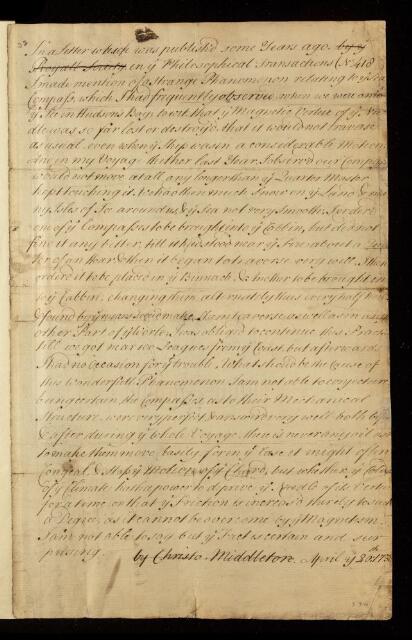 In a Letter which was publish'd some Years ago by ye
Royall Society in ye Philosophical Transactions (No. 418)
I made mention of a strange Phænomenon relating to ye Sea
Compass, which I had frequently observ'd when we were among
ye Ice in Hudsons Bay, to wit that ye Magnetic Vertue of ye Nee
dle was so far lost or destroy'd that it would not traverse
as usual even when ye Ship was in a considerable Motion
and in my Voyage thither last Year I observ'd our Compass
would not move at all any longer than ye Quarter Master
kept touching it. We had then much Snow on ye Land & ma
ny Isles of Ice around us, & ye Sea not very Smooth. I order'd
one of ye Compasses to be brought into ye Cabbin, but did not
find it any better, till it had stood near ye Fire about a Quar
ter of an Hour & then it began to traverse very well. I then
order'd it to be placed in ye Binnacle & another to be brought in
to ye Cabbin, changing them alternately thus every half hour
& found by ye means I cou'd make them traverse as well as in any
other Part of ye World. I was oblig'd to continue this Practice
till we got near 100 Leagues from ye Coast but afterwards
I had no Occasion for ye trouble. What should be the Cause of
this wonderful Phænomenon I am not able to conjecture
being certain the Compasses as to their Mechanical
Structure, were very perfect & answer'd very well both before
& after during ye whole Voyage. there is never any oil us'd
to make them move easily, for in ye case it might often
Congeal & stop ye Motion of ye Chard, but whether ye Cold
of ye Climate has the power to deprive ye Needle of its Vertue
for a time or that ye Friction is increas'd thereby to such
a Degree, as it cannot be over come by ye Magnetism
I am not able to say but ye Fact is certain and sur
prising.
by Christo. Middleton. April ye 20th 173